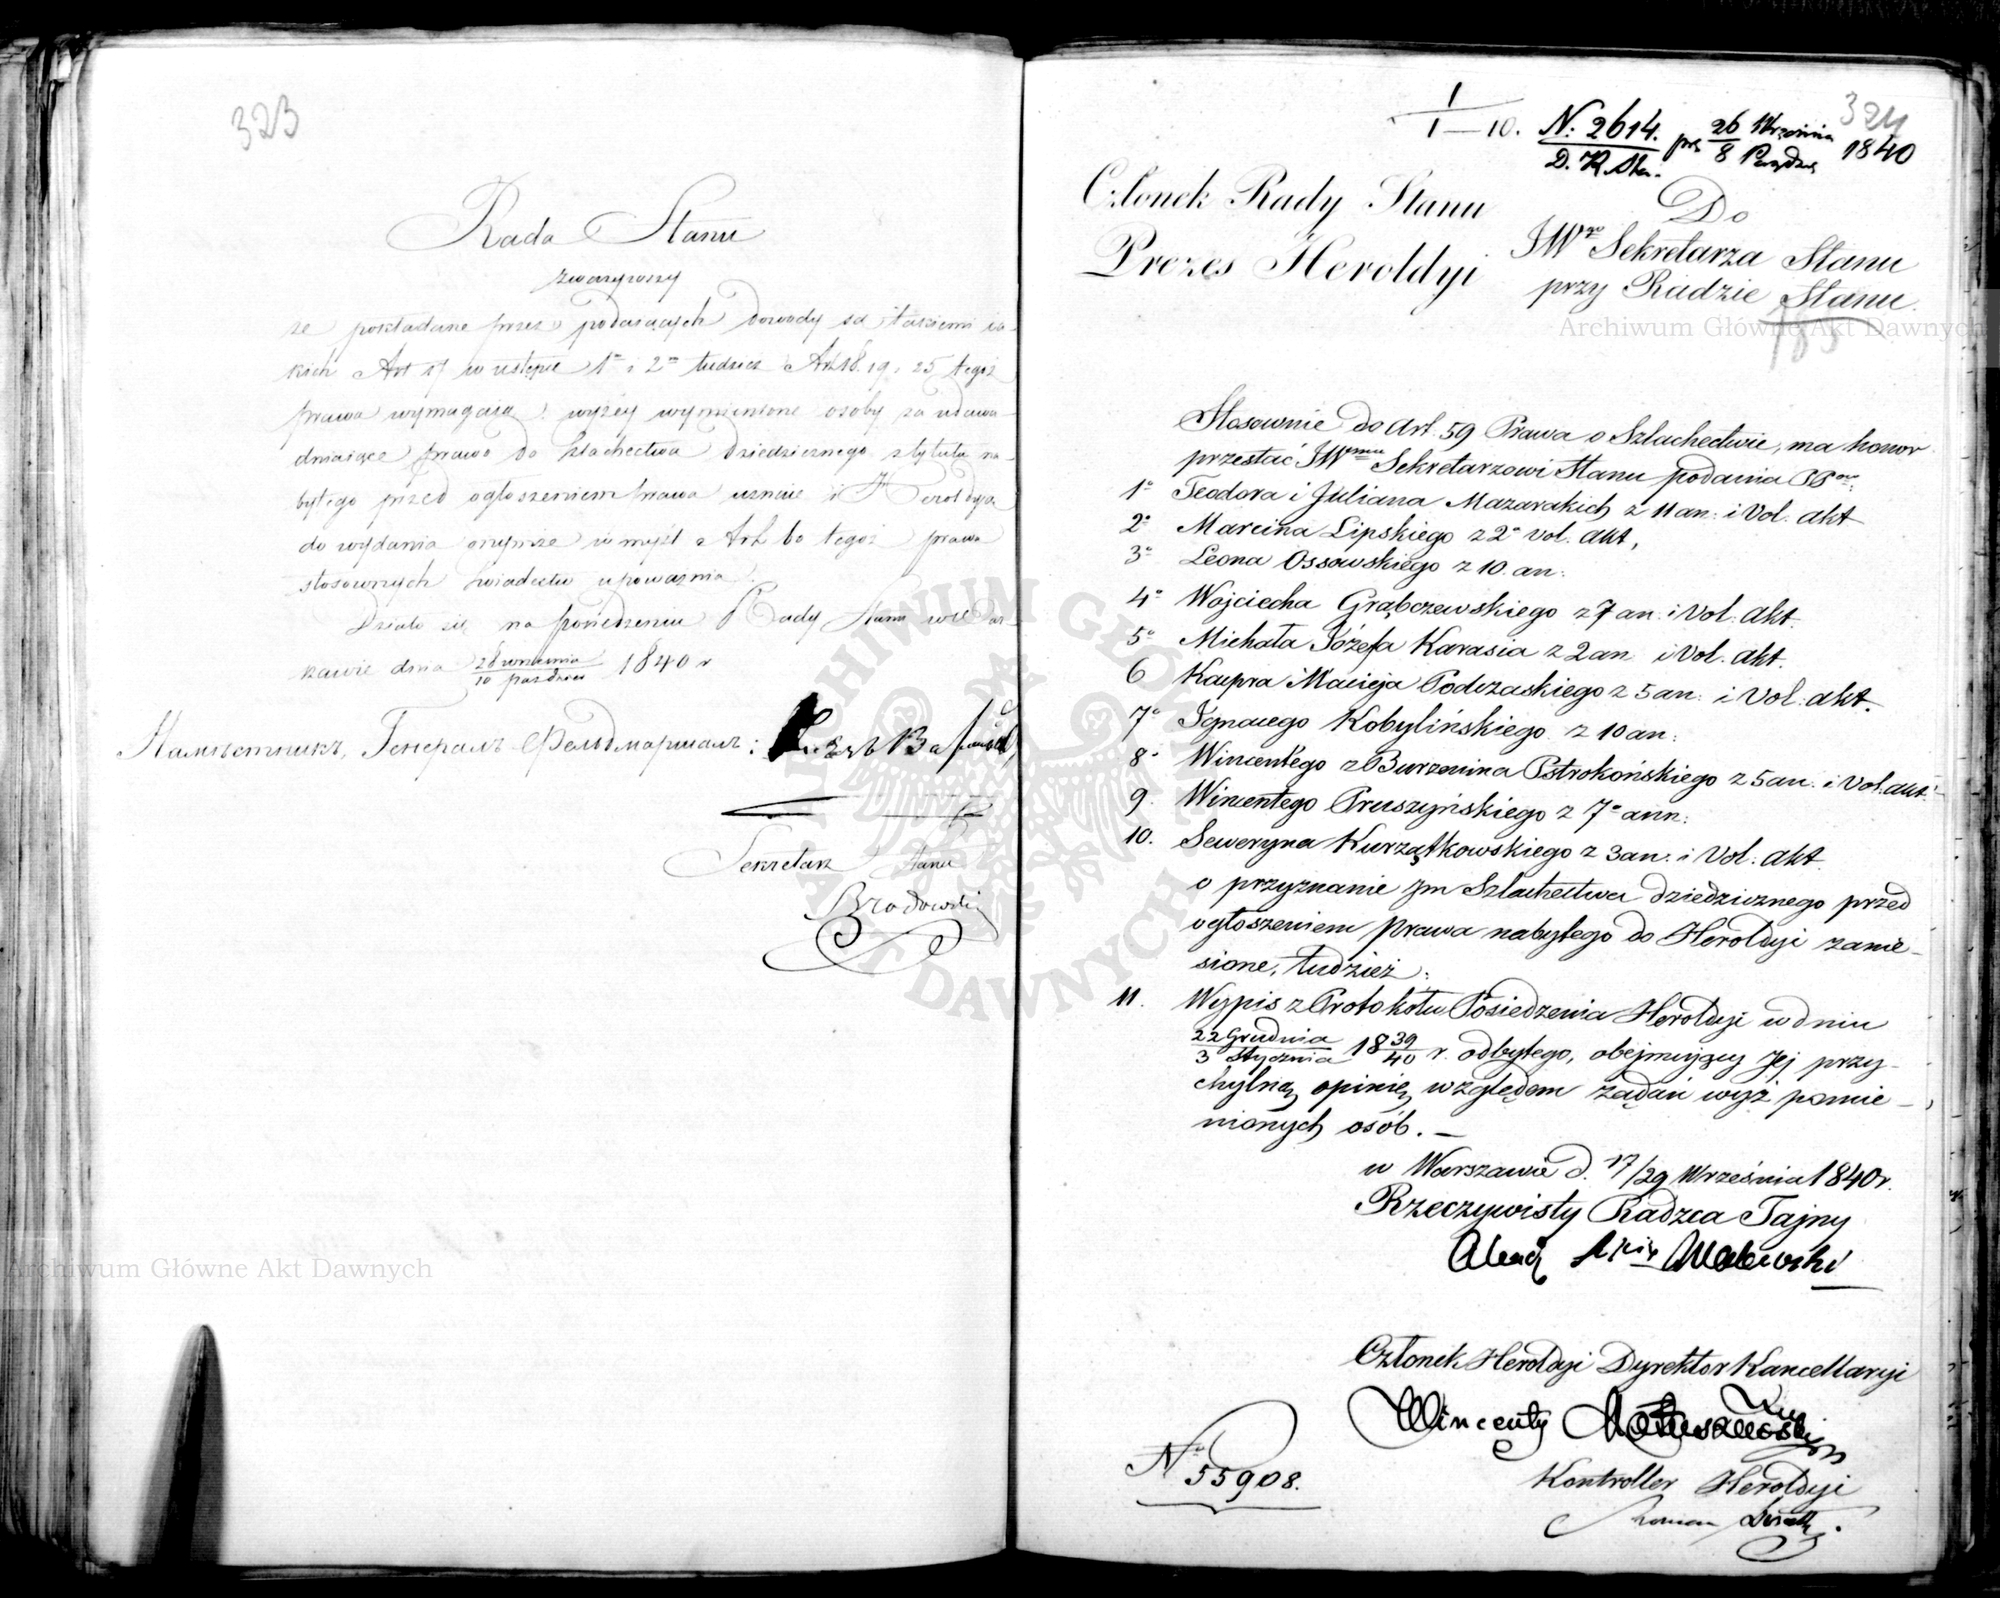 323
Rada Stanu
zważywszy
że pokładane przez podających dowody są takiemi ja-
kich Art w ustępie 1m i 2m tudzież Art 18. 19 i 25 tegoż
prawa wymagają: wyżey wymienione osoby za udowa-
dniaiące prawo do szlachectwa dziedzicznego z tytułu na-
bytego przed ogłoszeniem prawa uznaie i Heroldyą
do wydania onymże w myśl Art 60 tegoż prawa
stosownych świadectw upoważnia.
Działo się na posiedzeniu Rady Stanu w War-
szawie dnia 28 września / 10 paździer 1840 r
Намѣстникъ, Генералъ Фельдмаршалъ: Князь Варшавскій
Sekretarz Stanu
Brodowski
1/1 — 10. N: 2614. / D. K. Sta. prs 26 Września / 8 Paździe 1840
324
Członek Rady Stanu
Prezes Heroldyi
Do
JWo Sekretarza Stanu
przy Radzie Stanu.
185
Stosownie do Art. 59 Prawa o Szlachectwie, ma honor
przesłać JWmu Sekretarzowi Stanu podania PP
1o Teodora i Juliana Mazarakich z 11 an: i Vol. akt
2o Marcina Lipskiego z 2o vol. akt,
3o Leona Ossowskiego z 10. an:
4o Wojciecha Grąbczewskiego z 7 an: i Vol: akt.
5o Michała Józefa Karasia z 2 an i Vol. akt.
6 Kacpra Macieja Podczaskiego z 5 an: i Vol: akt.
7o Ignacego Kobylińskiego z 10 an:
8o Wincentego z Burzenina Pstrokońskiego z 5 an: i Vol. akt:
9. Wincentego Pruszyńskiego z 7o ann:
10. Seweryna Kurzątkowskiego z 3 an: i Vol: akt.
o przyznanie im Szlachectwa dziedzicznego przed
ogłoszeniem prawa nabytego do Heroldyi zanie-
sione, tudzież:
11. Wypis z Protokołu Posiedzenia Heroldyi w dniu
22 Grudnia / 3 Stycznia 18 39/40 r. odbytego, obejmujący jej przy-
chylną opinię względem żądań wyż pomie-
nionych osób. —
w Warszawie d. 17/29 Września 1840 r.
Rzeczywisty Radzca Tajny
Walewski
Członek Heroldyi Dyrektor Kancellaryi
Wincenty Matuszewski
No 55908.
Kontroller Heroldyi
Archiwum Główne Akt Dawnych
Archiwum Główne Akt Dawnych
ARCHIWUM GŁÓWNE AKT DAWNYCH